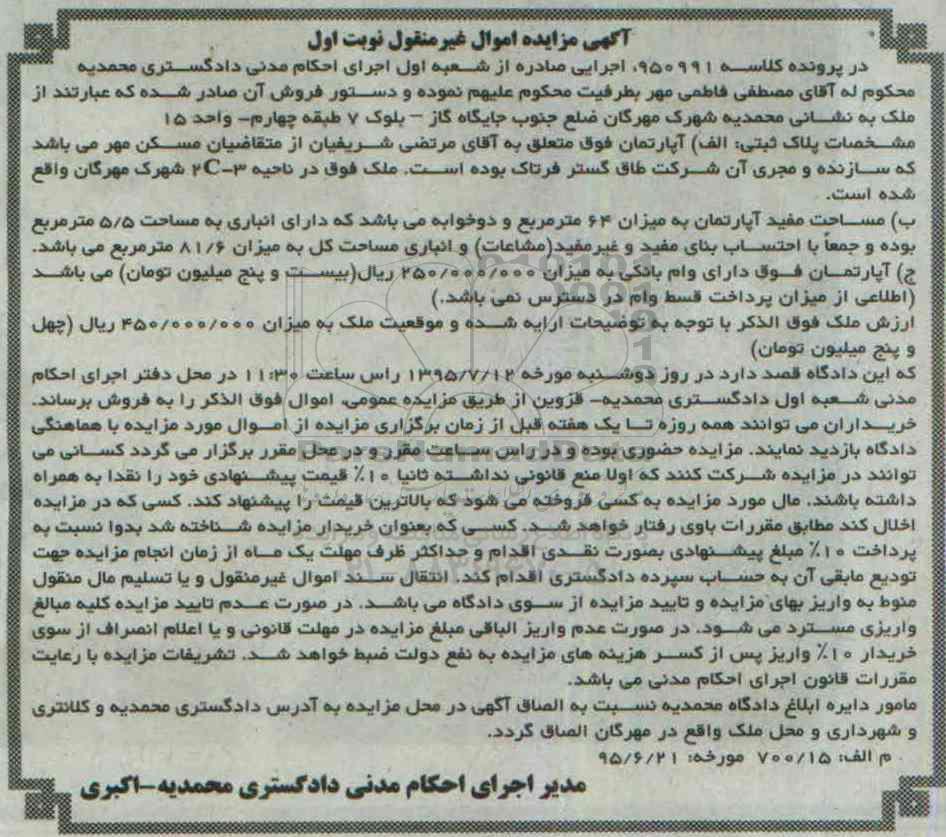 آگهی مزایده اموال غیرمنقول نوبت اول
در پرونده کلاسه ۹۵۰۹۹۱، اجرایی صادره از شعبه اول اجرای احکام مدنی دادگستری محمدیه
محکوم له آقای مصطفی فاطمی مهر بطرفیت محکوم علیهم نموده و دستور فروش آن صادر شده که عبارتند از
ملک به نشانی محمدیه شهرک مهرگان ضلع جنوب جایگاه گاز – بلوک ۷ طبقه چهارم– واحد ۱۵
مشخصات پلاک ثبتی: الف) آپارتمان فوق متعلق به آقای مرتضی شریفیان از متقاضیان مسکن مهر می باشد
که سازنده و مجری آن شرکت طاق گستر فرتاک بوده است. ملک فوق در ناحیه ۳-۲C شهرک مهرگان واقع
شده است.
ب) مساحت مفید آپارتمان به میزان ۶۴ مترمربع و دوخوابه می باشد که دارای انباری به مساحت ۵/۵ مترمربع
بوده و جمعاً با احتساب بنای مفید و غیرمفید(مشاعات) و انباری مساحت کل به میزان ۸۱/۶ مترمربع می باشد.
ج) آپارتمان فوق دارای وام بانکی به میزان ۲۵۰/۰۰۰/۰۰۰ ریال(بیست و پنج میلیون تومان) می باشد
(اطلاعی از میزان پرداخت قسط وام در دسترس نمی باشد.)
ارزش ملک فوق الذکر با توجه به توضیحات ارایه شده و موقعیت ملک به میزان ۴۵۰/۰۰۰/۰۰۰ ریال (چهل
و پنج میلیون تومان)
که این دادگاه قصد دارد در روز دوشنبه مورخه ۱۳۹۵/۷/۱۲ راس ساعت ۱۱:۳۰ در محل دفتر اجرای احکام
مدنی شعبه اول دادگستری محمدیه– قزوین از طریق مزایده عمومی، اموال فوق الذکر را به فروش برساند.
خریداران می توانند همه روزه تا یک هفته قبل از زمان برگزاری مزایده از اموال مورد مزایده با هماهنگی
دادگاه بازدید نمایند. مزایده حضوری بوده و در راس ساعت مقرر و در محل مقرر برگزار می گردد کسانی می
توانند در مزایده شرکت کنند که اولا منع قانونی نداشته ثانیا ۱۰٪ قیمت پیشنهادی خود را نقدا به همراه
داشته باشند. مال مورد مزایده به کسی فروخته می شود که بالاترین قیمت را پیشنهاد کند. کسی که در مزایده
اخلال کند مطابق مقررات باوی رفتار خواهد شد. کسی که بعنوان خریدار مزایده شناخته شد بدوا نسبت به
پرداخت ۱۰٪ مبلغ پیشنهادی بصورت نقدی اقدام و حداکثر ظرف مهلت یک ماه از زمان انجام مزایده جهت
تودیع مابقی آن به حساب سپرده دادگستری اقدام کند. انتقال سند اموال غیرمنقول و یا تسلیم مال منقول
منوط به واریز بهای مزایده و تایید مزایده از سوی دادگاه می باشد. در صورت عدم تایید مزایده کلیه مبالغ
واریزی مسترد می شود. در صورت عدم واریز الباقی مبلغ مزایده در مهلت قانونی و یا اعلام انصراف از سوی
خریدار ۱۰٪ واریز پس از کسر هزینه های مزایده به نفع دولت ضبط خواهد شد. تشریفات مزایده با رعایت
مقررات قانون اجرای احکام مدنی می باشد.
مامور دایره ابلاغ دادگاه محمدیه نسبت به الصاق آگهی در محل مزایده به آدرس دادگستری محمدیه و کلانتری
و شهرداری و محل ملک واقع در مهرگان الصاق گردد.
م الف: ۷۰۰/۱۵ مورخه: ۹۵/۶/۲۱
مدیر اجرای احکام مدنی دادگستری محمدیه–اکبری